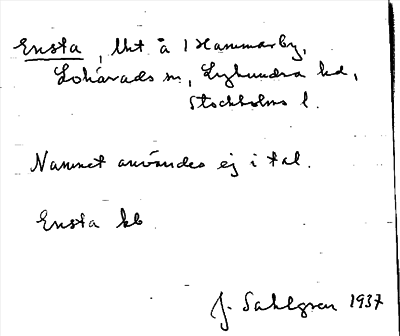 Ensta, lht å 1 Hammarby,
Lohärads sn, Lyhundra hd,
Stockholms l.
Namnet användes ej i tal.
Ensta kb
J. Sahlgren 1937